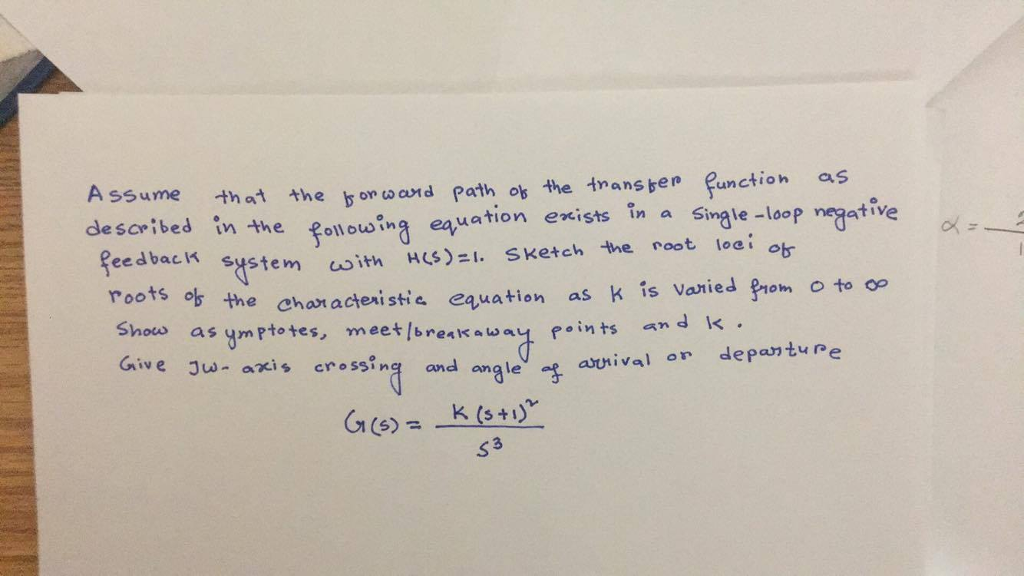 Assume that the forward path of the transfer function as
described in the following equation exists in a single-loop negative
feedback system with H(s)=1. Sketch the root loci of
roots of the characteristic equation as K is varied from 0 to ∞
Show asymptotes, meet/breakaway points and K.
Give Jw-axis crossing and angle of arrival or departure
G(s) = K(s+1)²
s³
α =